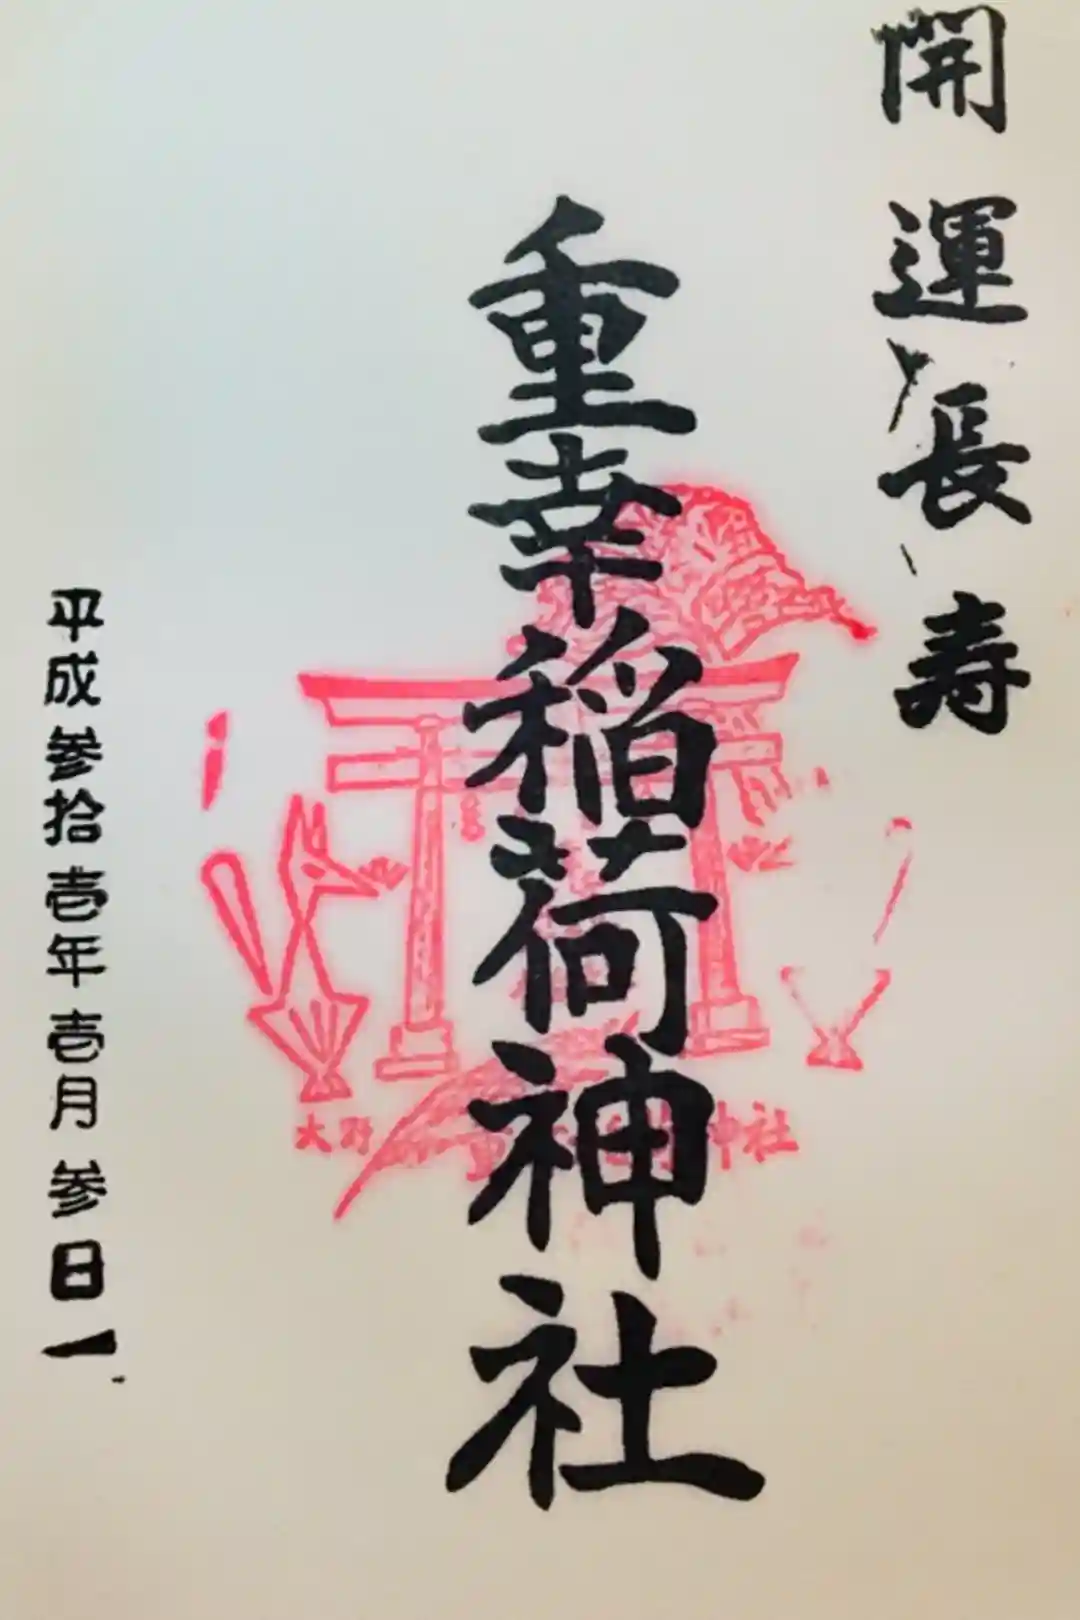 開運長寿
重幸稲荷神社
大野 重 神社
平成参拾壱年壱月参日